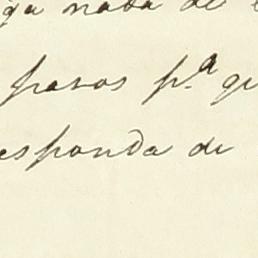 ga nada de
pasos p.ª qu
esponda de